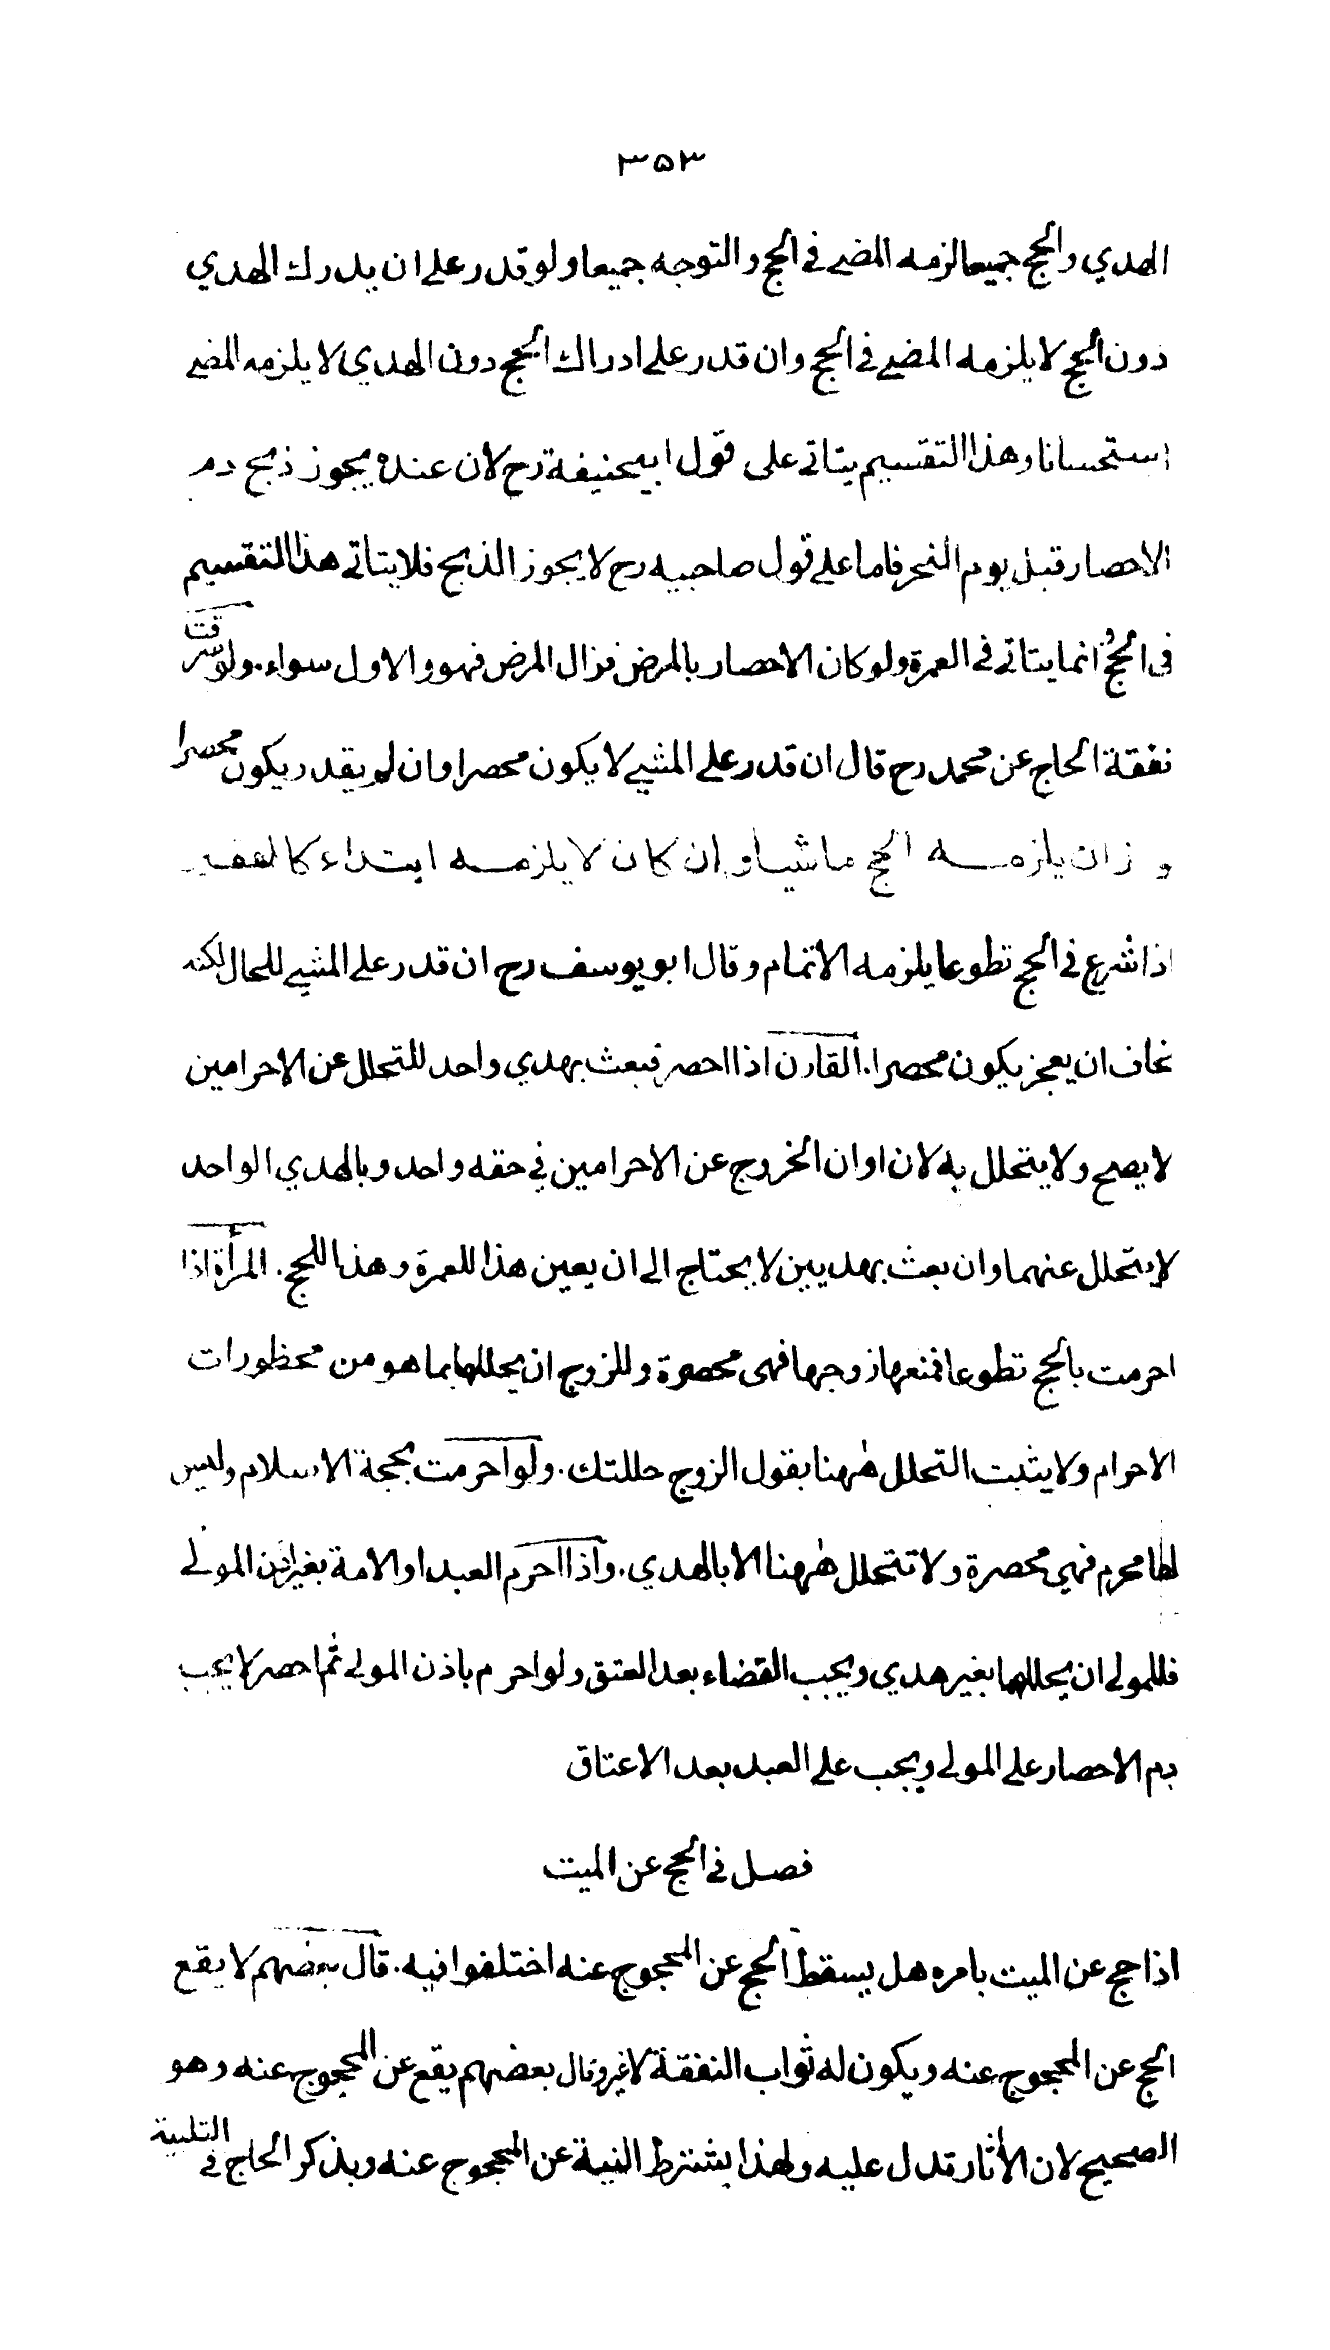 ٣٥٣
الهدي والحج جميعا لزمه المضي في الحج والتوجه جميعا ولو قدر على ان يدرك الهدي
دون الحج لا يلزمه المضي في الحج وان قدر على ادراك الحج دون الهدي لا يلزمه المضي
استحسانا وهذا التقسيم يتاتى على قول ابيحنيفة رح لان عنده يجوز ذبح دم
الاحصار قبل يوم النحر فاما على قول صاحبيه رح لا يجوز الذبح فلا يتاتى هذا التقسيم
في الحج انما يتاتى في العمرة ولو كان الاحصار بالمرض فزال المرض فهو والاول سواء. ولو سرقت
نفقة الحاج عن محمد رح قال ان قدر على المشي لا يكون محصرا وان لم يقدر يكون محصرا
ان يلزمه الحج ماشيا وان كان لا يلزمه ابتداء كالفقير
اذا شرع في الحج تطوعا يلزمه الاتمام وقال ابو يوسف رح ان قدر على المشي للحال لكنه
خاف ان يعجز يكون محصرا. القارن اذا احصر فبعث بهدي واحد للتحلل عن الاحرامين
لا يصح ولا يتحلل به لان اوان الخروج عن الاحرامين في حقه واحد وبالهدي الواحد
لا يتحلل عنهما وان بعث بهديين لا يحتاج الى ان يعين هذا للعمرة وهذا للحج. المرأة اذا
احرمت بالحج تطوعا فمنعها زوجها فهي محصرة وللزوج ان يحللها بما هو من محظورات
الاحرام ولا يثبت التحلل ههنا بقول الزوج حللتك. ولو احرمت بحجة الاسلام وليس
لها محرم فهي محصرة ولا تتحلل ههنا الا بالهدي. واذا احرم العبد او الامة بغير اذن المولى
فللمولى ان يحللهما بغير هدي ويجب القضاء بعد العتق ولو احرم باذن المولى ثم احصر لا يجب
دم الاحصار على المولى ويجب على العبد بعد الاعتاق
فصل في الحج عن الميت
اذا حج عن الميت بامره هل يسقط الحج عن المحجوج عنه اختلفوا فيه. قال بعضهم لا يقع
الحج عن المحجوج عنه ويكون له ثواب النفقة لا غير وقال بعضهم يقع عن المحجوج عنه وهو
الصحيح لان الأثار تدل عليه ولهذا يشترط النية عن المحجوج عنه ويذكر الحاج في التلبية